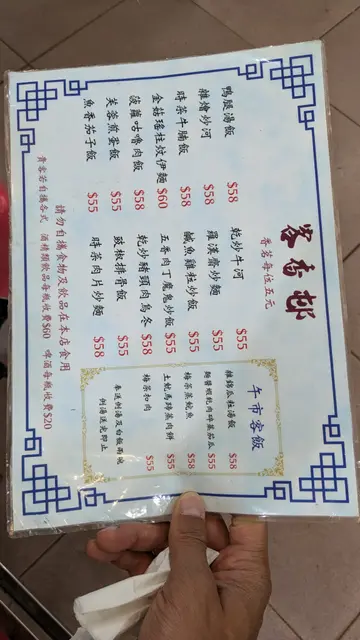 客香邨
香茗每位五元
鴨腿湯飯 $58
雜燴炒河 $58
時菜牛腩飯 $58
金菇瑤柱炆伊麵 $60
菠蘿咕嚕肉飯 $58
芙蓉煎蛋飯 $55
魚香茄子飯 $55
乾炒牛河 $55
羅漢齋炒麵 $55
鹹魚雞粒炒飯 $55
五香肉丁魔鬼炒飯 $55
乾炒豬頸肉烏冬 $58
豉椒排骨飯 $55
時菜肉片炒麵 $58
午市客飯
雜錦瓜粒湯飯 $58
麵醬蝦乾肉碎蒸茄瓜 $55
梅菜蒸鯇魚 $58
土魷馬蹄蒸肉餅 $55
梅菜扣肉 $55
奉送例湯及白飯
例湯送完即止
請勿自攜食物及飲品在本店食用
貴客若自攜各式 酒精類飲品每瓶收費$60 啤酒每瓶收費$20